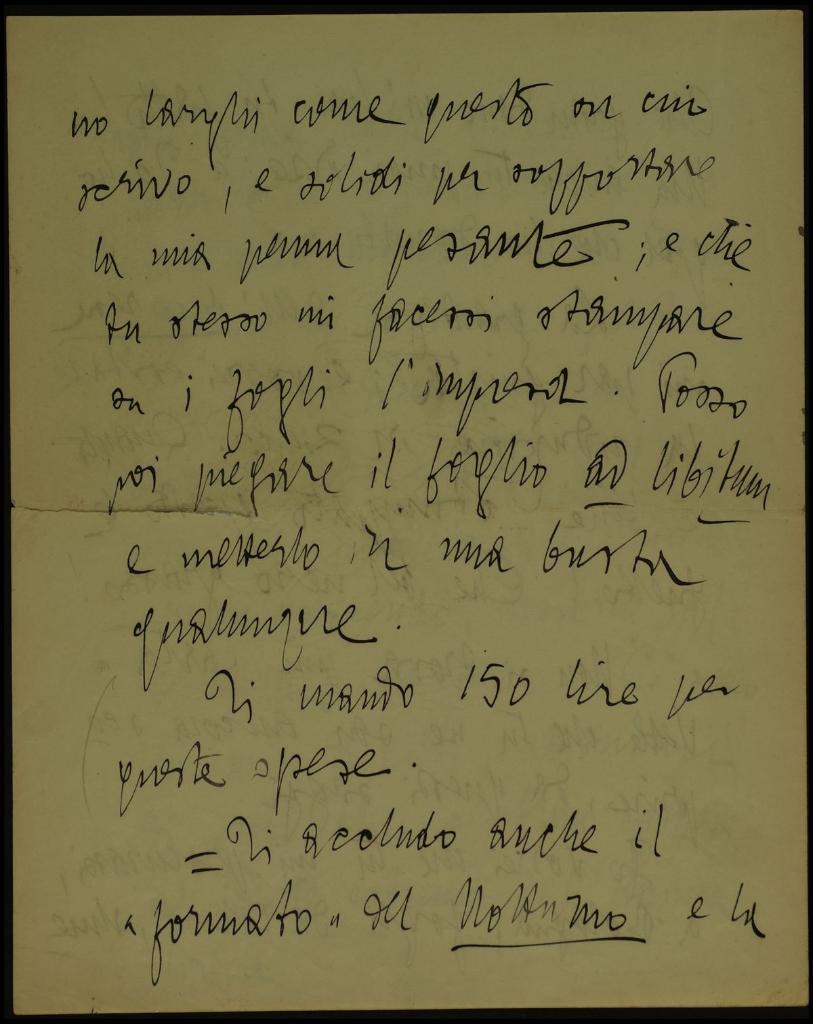 no larghi come questo su cui
scrivo, e solidi per sopportare
la mia penna pesante; e che
tu stesso mi facessi stampare
su i fogli l'impresa. Posso
poi piegare il foglio ad libitum
e metterlo in una busta
qualunque.
Ti mando 150 lire per
queste spese.
= Ti accludo anche il
"formato" del Notturno e la